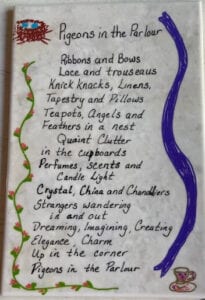 Pigeons in the Parlour
Ribbons and Bows
Lace and trouseaus
Knick knacks, Linens,
Tapestry and Pillows
Teapots, Angels and
Feathers in a nest
Quaint Clutter
in the cupboards
Perfumes, scents and
Candle Light
Crystal, China and Chandliers
Strangers wandering
in and out
Dreaming, Imagining, Creating
Elegance, Charm
Up in the corner
Pigeons in the Parlour